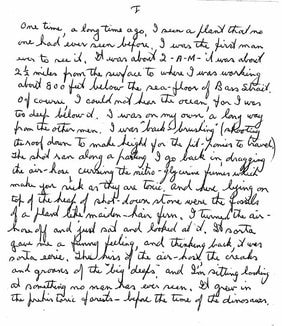 I
One time, a long time ago, I seen a plant that no
one had ever seen before, I was the first man
ever to see it. It was about 2-A-M- it was about
2½ miles from the surface to where I was working
about 800 feet below the sea-floor of Bass Strait.
Of course, I could not hear the ocean, for I was
too deep below it. I was on my own, a long way
from the other men. I was back-brushing (shooting
the roof down to make height for the pit-ponies to travel)
The shot ran along a parting, I go back in dragging
the air-hose, cursing the nitro-glycerine fumes which
make you sick as they are toxic, and here lying on
top of the heap of shot-down stone were the fossils
of a plant like maiden-hair fern. I turned the air-
hose off and just sat and looked at it. It sorta
gave me a funny feeling, and thinking back, it was
sorta eerie. The hiss of the air-hose, the creaks
and groans of the "big deeps" and I'm sitting looking
at something no man has ever seen. It grew in
the prehistoric forests - before the time of the dinosaurs.